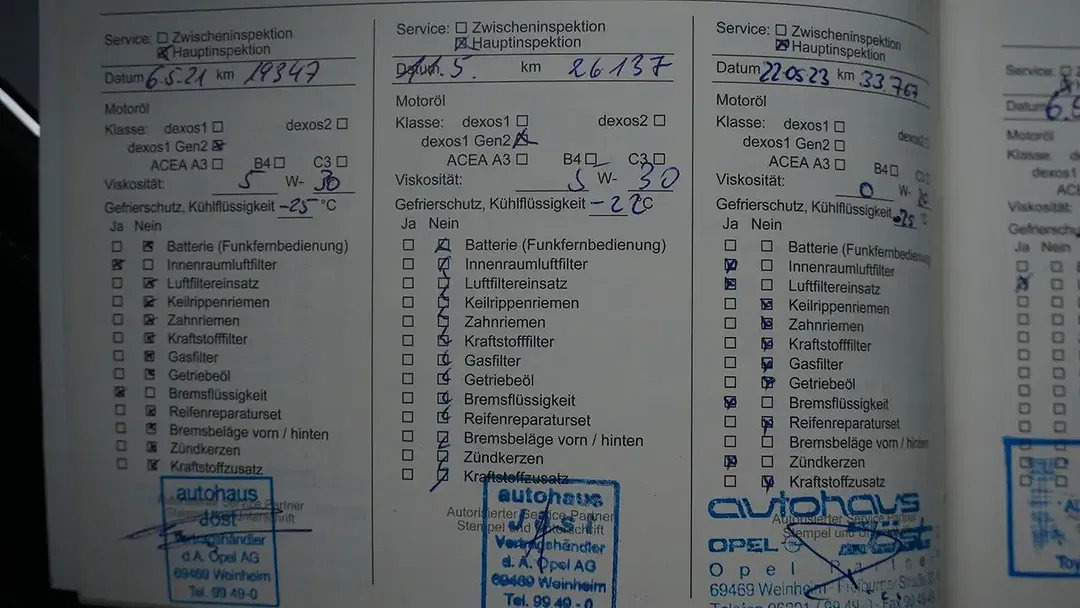 Service: Zwischeninspektion
Hauptinspektion
Datum 6.5.21 km 19347
Motoröl
Klasse: dexos1 dexos2
dexos1 Gen2
ACEA A3 B4 C3
Viskosität: 5 W- 30
Gefrierschutz, Kühlflüssigkeit -25 °C
Ja Nein
Batterie (Funkfernbedienung)
Innenraumluftfilter
Luftfiltereinsatz
Keilrippenriemen
Zahnriemen
Kraftstofffilter
Gasfilter
Getriebeöl
Bremsflüssigkeit
Reifenreparaturset
Bremsbeläge vorn / hinten
Zündkerzen
Kraftstoffzusatz
autohaus
jöst
Vertragshändler
d.A. Opel AG
69469 Weinheim
Tel. 99 49-0
Service: Zwischeninspektion
Hauptinspektion
Datum 5. km 26.137
Motoröl
Klasse: dexos1 dexos2
dexos1 Gen2
ACEA A3 B4 C3
Viskosität: 5 W- 30
Gefrierschutz, Kühlflüssigkeit -22 °C
Ja Nein
Batterie (Funkfernbedienung)
Innenraumluftfilter
Luftfiltereinsatz
Keilrippenriemen
Zahnriemen
Kraftstofffilter
Gasfilter
Getriebeöl
Bremsflüssigkeit
Reifenreparaturset
Bremsbeläge vorn / hinten
Zündkerzen
Kraftstoffzusatz
autohaus
Autorisierter Service Partner
Stempel und Unterschrift
Vertragshändler
d. A. Opel AG
69469 Weinheim
Tel. 99 49 - 0
Service: Zwischeninspektion
Hauptinspektion
Datum 22.05.23 km 33.767
Motoröl
Klasse: dexos1 dexos2
dexos1 Gen2
ACEA A3 B4 C3
Viskosität: 0 W-
Gefrierschutz, Kühlflüssigkeit -25 °C
Ja Nein
Batterie (Funkfernbedienung)
Innenraumluftfilter
Luftfiltereinsatz
Keilrippenriemen
Zahnriemen
Kraftstofffilter
Gasfilter
Getriebeöl
Bremsflüssigkeit
Reifenreparaturset
Bremsbeläge vorn / hinten
Zündkerzen
Kraftstoffzusatz
autohaus
Autorisierter Service Partner
Stempel und
OPEL jöst
Opel Partner
69469 Weinheim
Service:
Datum 6.
Motoröl
Klasse:
Viskosität:
Ja Nein